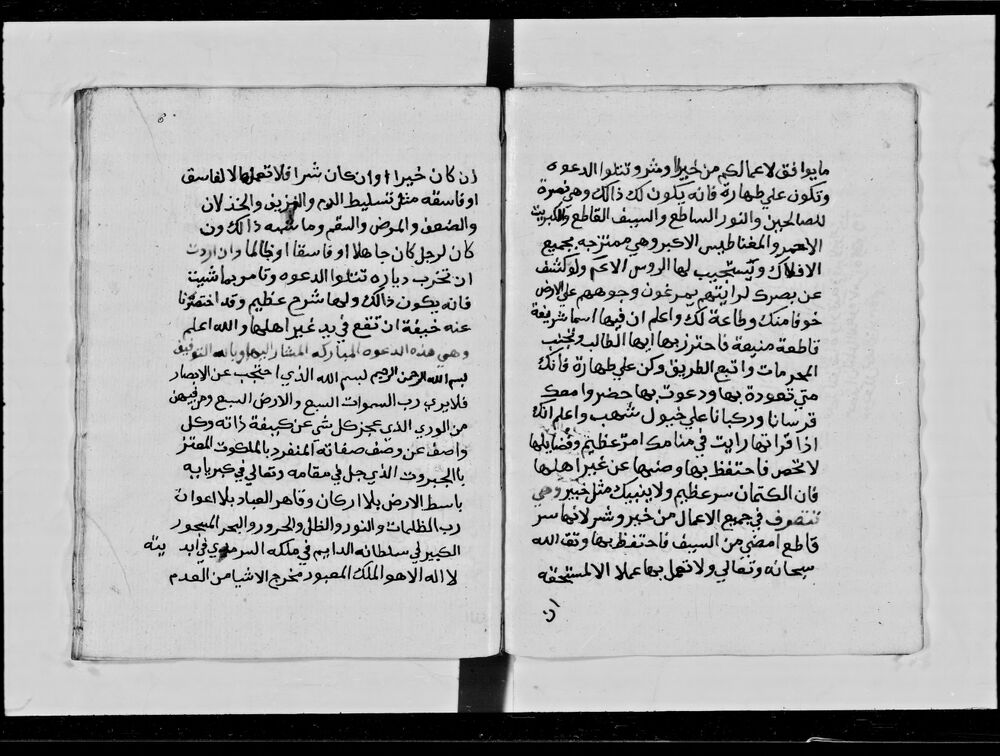 ما يوافق لاعمالكم من خيرا ومثر وتتلوا الدعوه
وتكون علي طهارة فانه يكون لك ذالك وهي نصرة
للصالحين والنور الساطع والسيف القاطع والكبريت
الاحمر والمغناطيس الاكبر وهي ممتزجه بجميع
الافلاك وتستجيب لها الروس الاكم ولو كشف
عن بصرك لرايتهم يمرغون وجوههم علي الارض
خوفا منك وطاعة لك واعلم ان فيها اسما شريفة
قاطعة منيعة فاحترز بها ايها الطالب وتجنب
المحرمات واتبع الطريق وكن علي طهارة فانك
متي تعودة بها ودعوت بها حضروا معك
فرسانا وركبانا علي خيول شهب واعلم انك
اذا قراتها رايت في منامك امر عظيم وفضايلها
لا تحص فاحتفظ بها وصنها عن غير اهلها
فان الكتمان سر عظيم ولا ينبيك مثل خبير وهي
تتصرف في جميع الاعمال من خير وشر لانها سر
قاطع امضي من السيف فاحتفظ بها وتق الله
سبحانه وتعالي ولا تعمل بها عملا الا لمستحقه
ان
ان كان خيرا اوان كان شرا فلا تعملها الا لفاسق
او فاسقه مثل تسليط الدم والنزيف والخذلان
والضعف والمرض والسقم وما شبه ذالك ون
كان لرجل كان جاهلا او فاسقا او ظالما وان اردت
ان تخرب دياره تتلوا الدعوه وتامر بما شيت
فانه يكون ذالك ولها شرح عظيم وقد اختصرنا
عنه خيفة ان تقع في يد غير اهلها والله اعلم
وهي هذه الدعوه المباركه المشار اليها وبالله التوفيق
بسم الله الرحمن الرحيم بسم الله الذي احتجب عن الابصار
فلا يري رب السموات السبع والارض السبع ومن فيهن
من الوري الذي عجز كل شي عن كيفة ذاته وكل
واصف عن وصف صفاته المنفرد بالملكوت المعتز
باالجبروت الذي جل في مقامه وتعالي في كبريايه
باسط الارض بلا اركان وقاهر العباد بلا اعوان
رب الظلمات والنور والظل والحرور والبحر المسجور
الكبير في سلطانه الدايم في ملكه السرمدي في ابد يته
لا اله الا هو الملك المعبود مخرج الاشيا من العدم